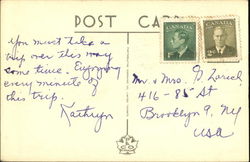 POST CARD
CANADA CANADA
You must take a
trip over this way
some time. Enjoying
every minute of
this trip.
Kathryn
Mr. & Mrs. G. 
416 - 85 St
Brooklyn 9, NY
USA